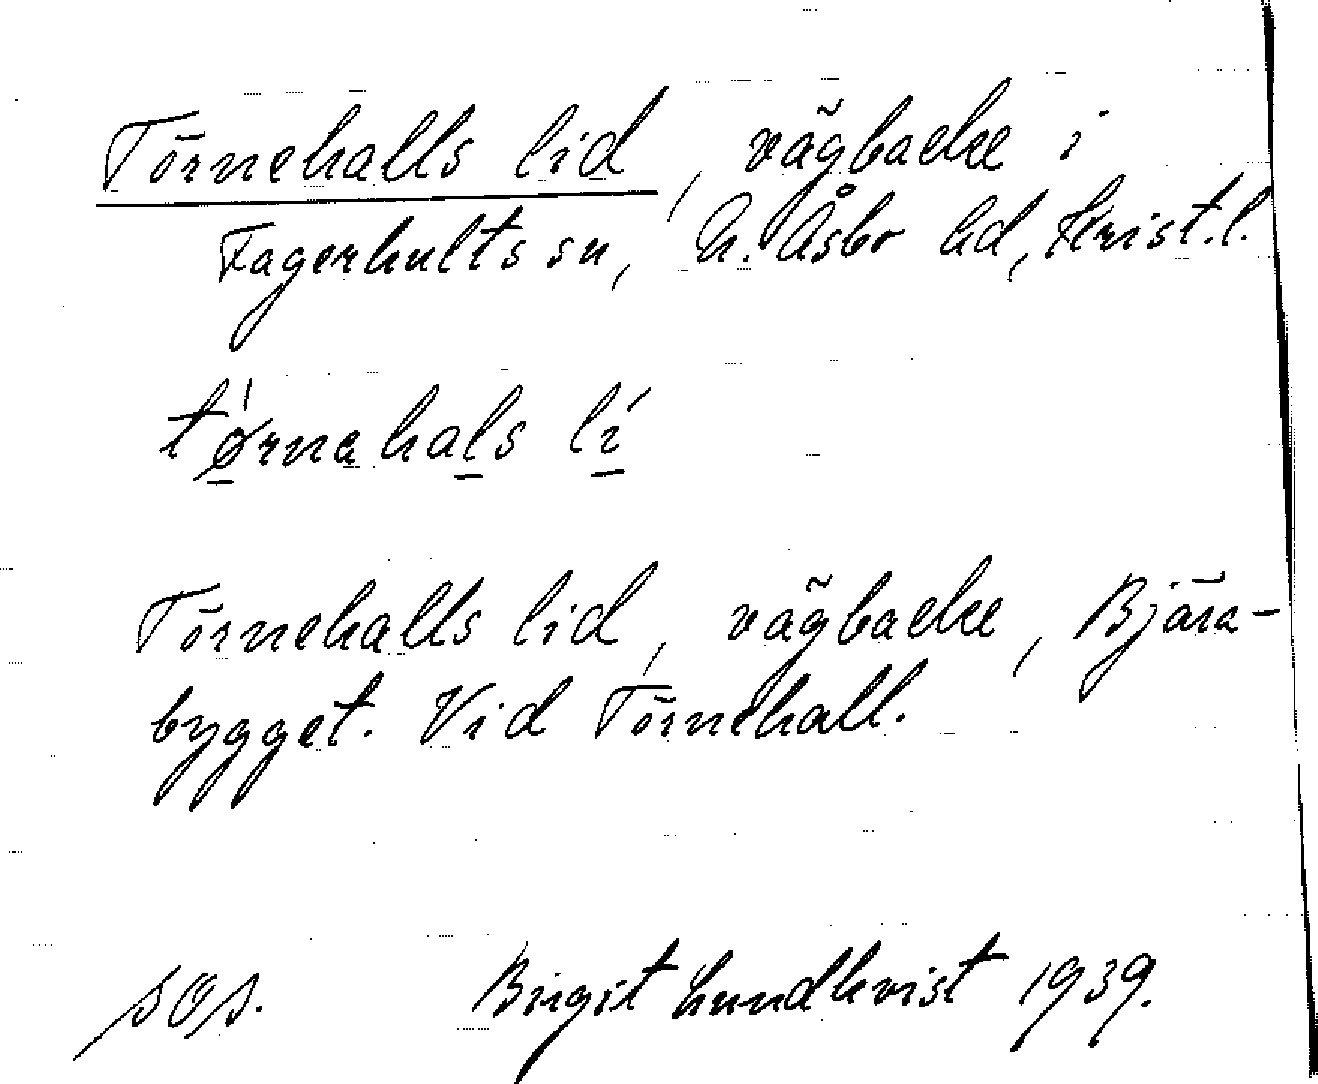 Törnehalls lid, vägbacke i
Fagerhults sn, N. Åsbo hd, Krist.l.
tørnahals lí
Törnehalls lid, vägbacke, Bjära-
bygget. Vid Törnehall.
sös. Birgit Lundkvist 1939.